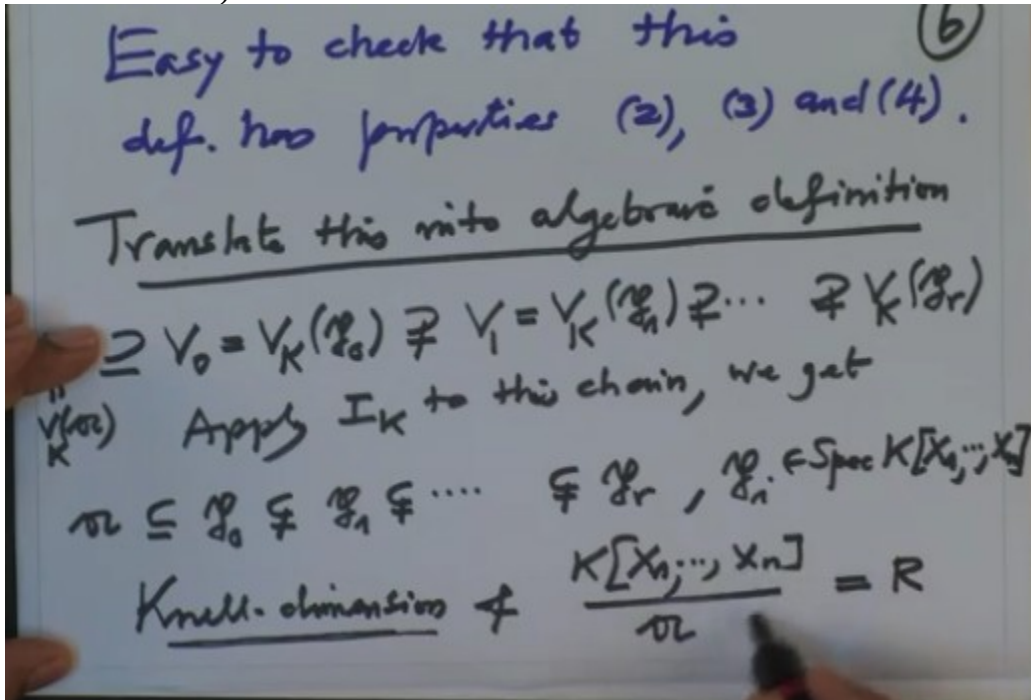 (6)
Easy to check that this
def. has properties (2), (3) and (4).
Translate this into algebraic definition
⊇ V₀ = V_K(𝔭₀) ⊋ V₁ = V_K(𝔭₁) ⊋ ··· ⊋ V_K(𝔭ᵣ)
V_K(𝔞) Apply I_K to this chain, we get
𝔞 ⊆ 𝔭₀ ⊊ 𝔭₁ ⊊ ···· ⊊ 𝔭ᵣ, 𝔭ᵢ ∈ Spec K[X₁,··,Xₙ]
Krull-dimension of K[X₁,··,Xₙ] / 𝔞 = R